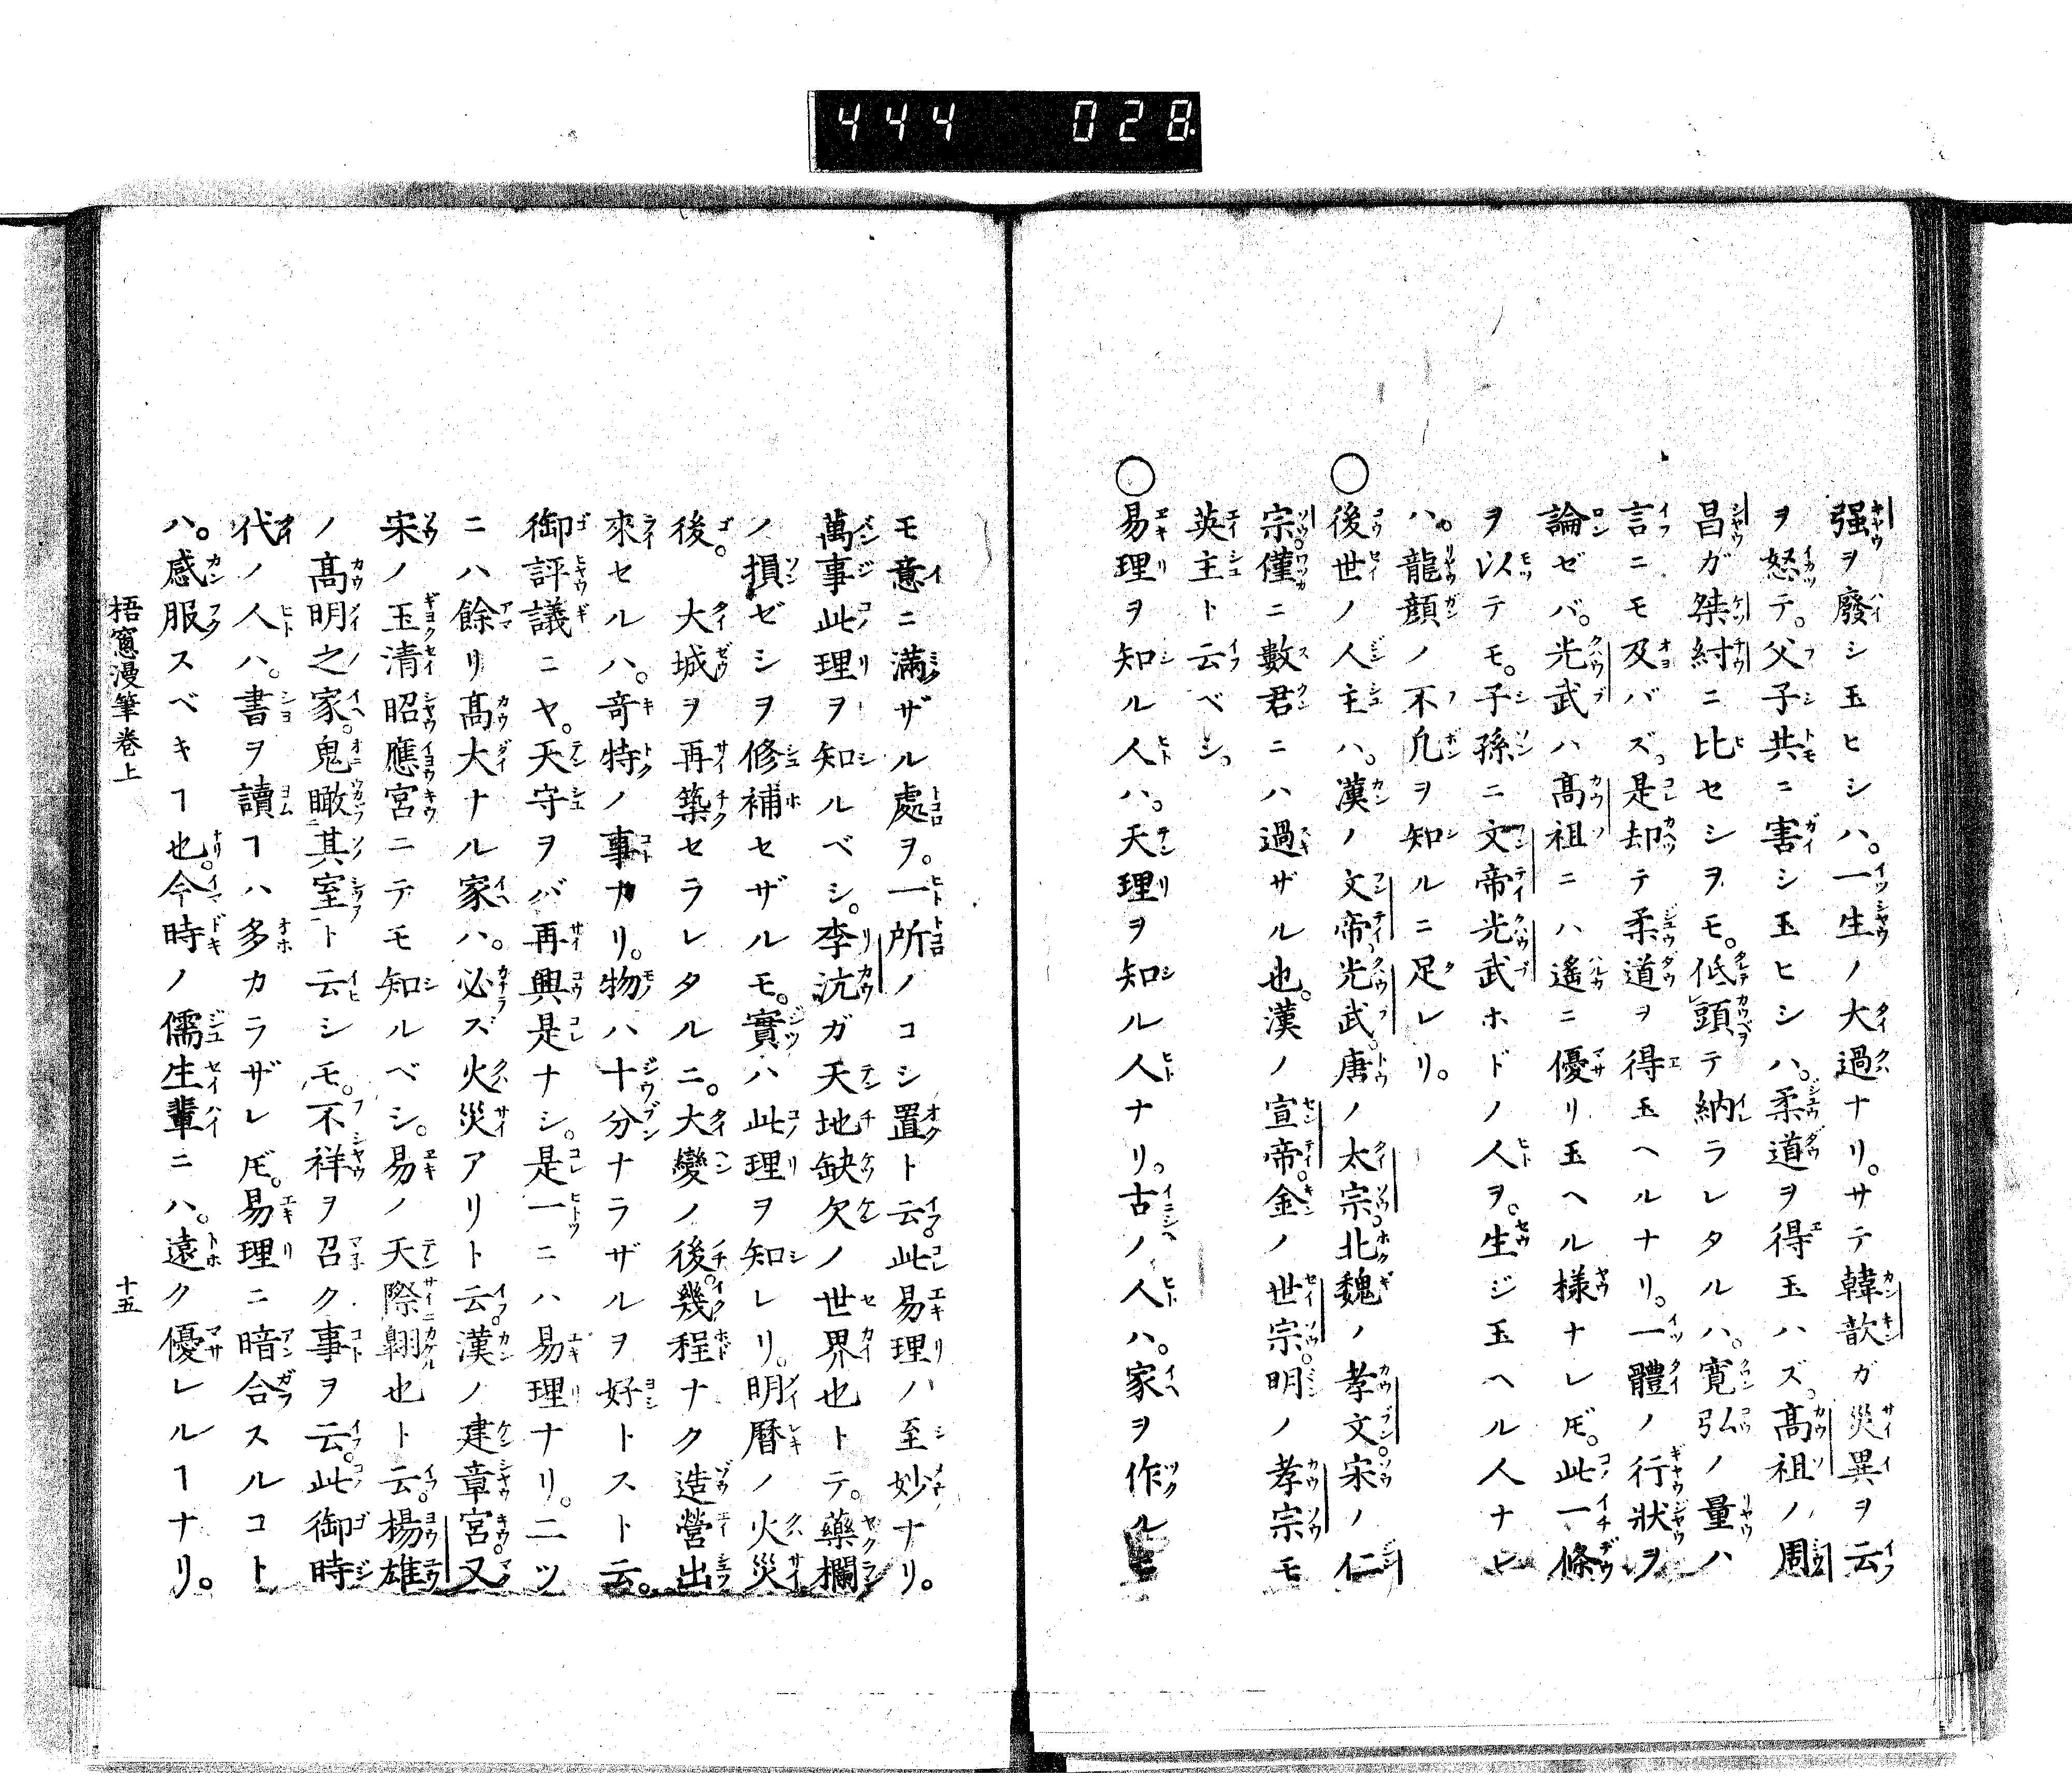 444 028.
强ヲ廢シ玉ヒシハ。一生ノ大過ナリ。サテ韓歆ガ災異ヲ云
ヲ怒テ。父子共ニ害シ玉ヒシハ。柔道ヲ得玉ハズ。髙祖ノ周
昌ガ桀紂ニ比セシヲモ。低頭テ納ラレタルハ。寛弘ノ量ハ
言ニモ及バズ。是却テ柔道ヲ得玉ヘルナリ。一體ノ行狀ヲ
論ゼバ。光武ハ髙祖ニハ遙ニ優リ玉ヘル樣ナレ𪜈。此一條
ヲ以テモ。子孫ニ文帝光武ホドノ人ヲ。生ジ玉ヘル人ナレ
ハ。龍顔ノ不凡ヲ知ルニ足レリ。
○後世ノ人主ハ。漢ノ文帝。光武。唐ノ太宗。北魏ノ孝文。宋ノ仁
宗。僅ニ數君ニハ過ザル也。漢ノ宣帝。金ノ世宗。明ノ孝宗モ
英主ト云ベシ。
○易理ヲ知ル人ハ。天理ヲ知ル人ナリ。古ノ人ハ。家ヲ作ル
モ意ニ滿ザル處ヲ。一所ノコシ置ト云。此易理ハ至妙ナリ。
萬事此理ヲ知ルベシ。李沆ガ天地缺欠ノ世界也トテ。藥欄
ノ損ゼシヲ修補セザルモ。實ハ此理ヲ知レリ。明曆ノ火災
後。大城ヲ再築セラレタルニ。大變ノ後。幾程ナク造營出
來セルハ。奇特ノ事ナリ。物ハ十分ナラザルヲ好トスト云。
御評議ニヤ。天守ヲバ再興是ナシ。是一ニハ易理ナリ。二ツ
ニハ餘リ髙大ナル家ハ。必ズ火災アリト云。漢ノ建章宮。又
宋ノ玉清昭應宮ニテモ知ルベシ。易ノ天際翺也ト云。楊雄
ノ髙明之家。鬼瞰其室ト云シモ。不祥ヲ召ク事ヲ云。此御時
代ノ人ハ。書ヲ讀ヿハ多カラザレ𪜈。易理ニ暗合スルコト
ハ。感服スベキヿ也。今時ノ儒生輩ニハ。遠ク優レルヿナリ。
梧窻漫筆卷上 十五